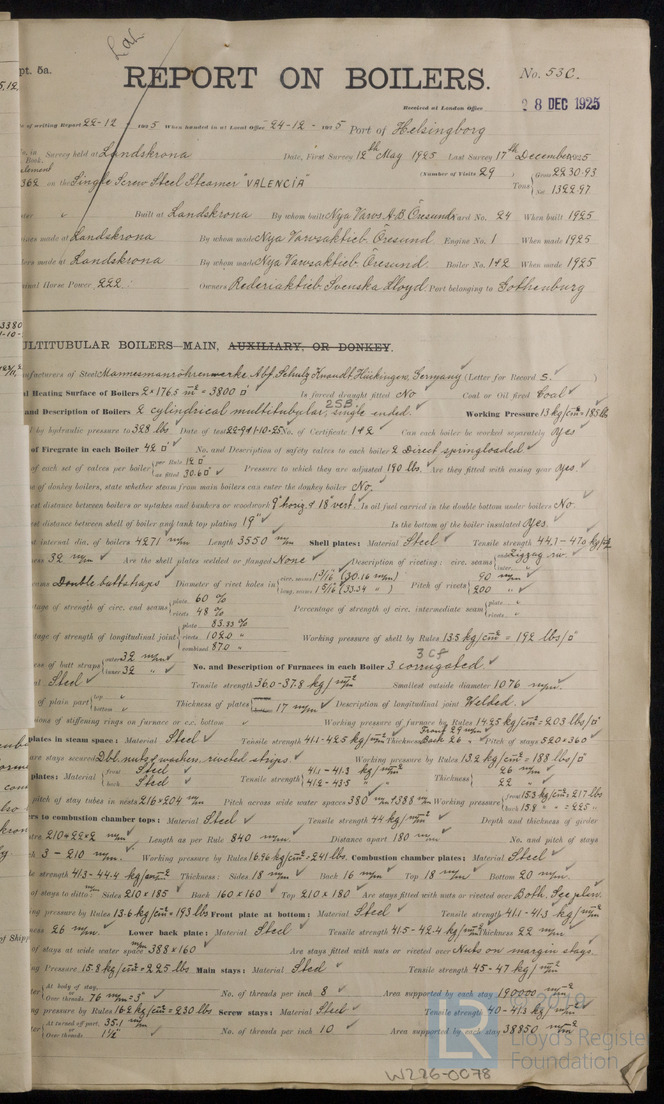 Lar
pt. 5a.
REPORT ON BOILERS.
No. 53C.
Received at London Office
28 DEC 1925
of writing Report 22-12 1925 When handed in at Local Office 24-12-1925 Port of Helsingborg
Survey held at Landskrona Date, First Survey 12th May 1925 Last Survey 17th December 1925
Book. (Number of Visits 29)
362 on the Single Screw Steel Steamer "VALENCIA" Tons Gross 2230.93 Net 1322.97
Built at Landskrona By whom built Nya Varvs A.B. Öresund Yard No. 24 When built 1925
made at Landskrona By whom made Nya Varvsaktieb. Öresund Engine No. 1 When made 1925
made at Landskrona By whom made Nya Varvsaktieb. Öresund. Boiler No. 142 When made 1925
Horse Power 222 Owners Rederiaktieb. Svenska Lloyd. Port belonging to Gothenburg
ULTITUBULAR BOILERS—MAIN, AUXILIARY, OR DONKEY.
nufacturers of Steel Mannesmannröhrenwerke Abt. Schulz Knaudt Hückingen, Germany (Letter for Record S.)
Heating Surface of Boilers 2 × 176.5 m² = 3800 □' Is forced draught fitted No Coal or Oil fired Coal
and Description of Boilers 2 cylindrical multitubular, single ended. 2SB Working Pressure 13 kg/cm² = 185 lbs
by hydraulic pressure to 328 lbs Date of test No. of Certificate 142 Can each boiler be worked separately Yes
of Firegrate in each Boiler 42 □' No. and Description of safety valves to each boiler 2 Direct springloaded
of each set of valves per boiler per Rule 12 □" as fitted 30.6 □" Pressure to which they are adjusted 190 lbs. Are they fitted with easing gear Yes.
of donkey boilers, state whether steam from main boilers can enter the donkey boiler No.
distance between boilers or uptakes and bunkers or woodwork 9" horiz. & 18" vert. Is oil fuel carried in the double bottom under boilers No.
distance between shell of boiler and tank top plating 19" Is the bottom of the boiler insulated Yes.
internal dia. of boilers 4271 m/m Length 3550 m/m Shell plates: Material Steel Tensile strength 44.1-47.9 kg/
32 m/m Are the shell plates welded or flanged None Description of riveting: circ. seams Zigzag riv.
Double buttstraps Diameter of rivet holes in circ. seams 1 3/16" (30.16 m/m) long. seams 1 5/16" (33.34 ") Pitch of rivets 90 m/m 200 "
of strength of circ. end seams plate 60 % rivets 48 % Percentage of strength of circ. intermediate seam plate rivets
tage of strength of longitudinal joint plate 83.33 % rivets 102.0 " combined 87.0 " Working pressure of shell by Rules 13.5 kg/cm² = 192 lbs/□"
of butt straps outer 32 m/m inner 32 " No. and Description of Furnaces in each Boiler 3 corrugated. 3 Cf
Steel Tensile strength 36.0-37.8 kg/m/m² Smallest outside diameter 1076 m/m.
of plain part top bottom Thickness of plates 17 m/m Description of longitudinal joint Welded.
sions of stiffening rings on furnace or c.c. bottom Working pressure of furnace by Rules 14.25 kg/cm² = 203 lbs/□"
plates in steam space: Material Steel Tensile strength 41.1-42.5 kg/m/m² Thickness Front 29 m/m Back 26 " Pitch of stays 520 × 360
are stays secured Dbl. nuts & washers, riveted strips. Working pressure by Rules 13.2 kg/cm² = 188 lbs/□"
plates: Material front Steel back Steel Tensile strength 41.1-41.3 kg/m/m² 41.2-43.5 " Thickness 26 m/m 22 "
pitch of stay tubes in nests 216 × 204 m/m Pitch across wide water spaces 380 m/m & 388 m/m Working pressure front 15.3 kg/cm² = 217 lbs back 15.8 " = 225 "
to combustion chamber tops: Material Steel Tensile strength 44 kg/m/m² Depth and thickness of girder
210 × 22 × 2 m/m Length as per Rule 840 m/m. Distance apart 180 m/m No. and pitch of stays
3 - 210 m/m. Working pressure by Rules 16.96 kg/cm² = 241 lbs. Combustion chamber plates: Material Steel
strength 41.3-44.4 kg/m/m² Thickness: Sides 18 m/m Back 16 m/m Top 18 m/m Bottom 20 m/m.
of stays to ditto: Sides 210 × 185 Back 160 × 160 Top 210 × 180 Are stays fitted with nuts or riveted over Both, See plan.
pressure by Rules 13.6 kg/cm² = 193 lbs Front plate at bottom: Material Steel Tensile strength 41.1-41.3 kg/m/m²
26 m/m Lower back plate: Material Steel Tensile strength 41.5-42.4 kg/m/m² Thickness 22 m/m
of stays at wide water space 388 × 160 m/m Are stays fitted with nuts or riveted over Nuts on margin stays
Pressure 15.8 kg/cm² = 225 lbs Main stays: Material Steel Tensile strength 45-47 kg/m/m²
At body of stay, or Over threads 76 m/m = 3" No. of threads per inch 8 Area supported by each stay 190000 m/m²
pressure by Rules 16.2 kg/cm² = 230 lbs Screw stays: Material Steel Tensile strength 40-41.3 kg/m/m²
At turned off part, or Over threads 35.1 m/m 1 1/2" No. of threads per inch 10 Area supported by each stay 38850 m/m²
LR
© 2019
Lloyd's Register
Foundation
W226-0078